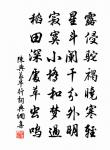 露侵駝褐曉寒輕
星斗闌干分外明
寂寞小橋和夢過
稻田深處草蟲鳴
陳與義早行